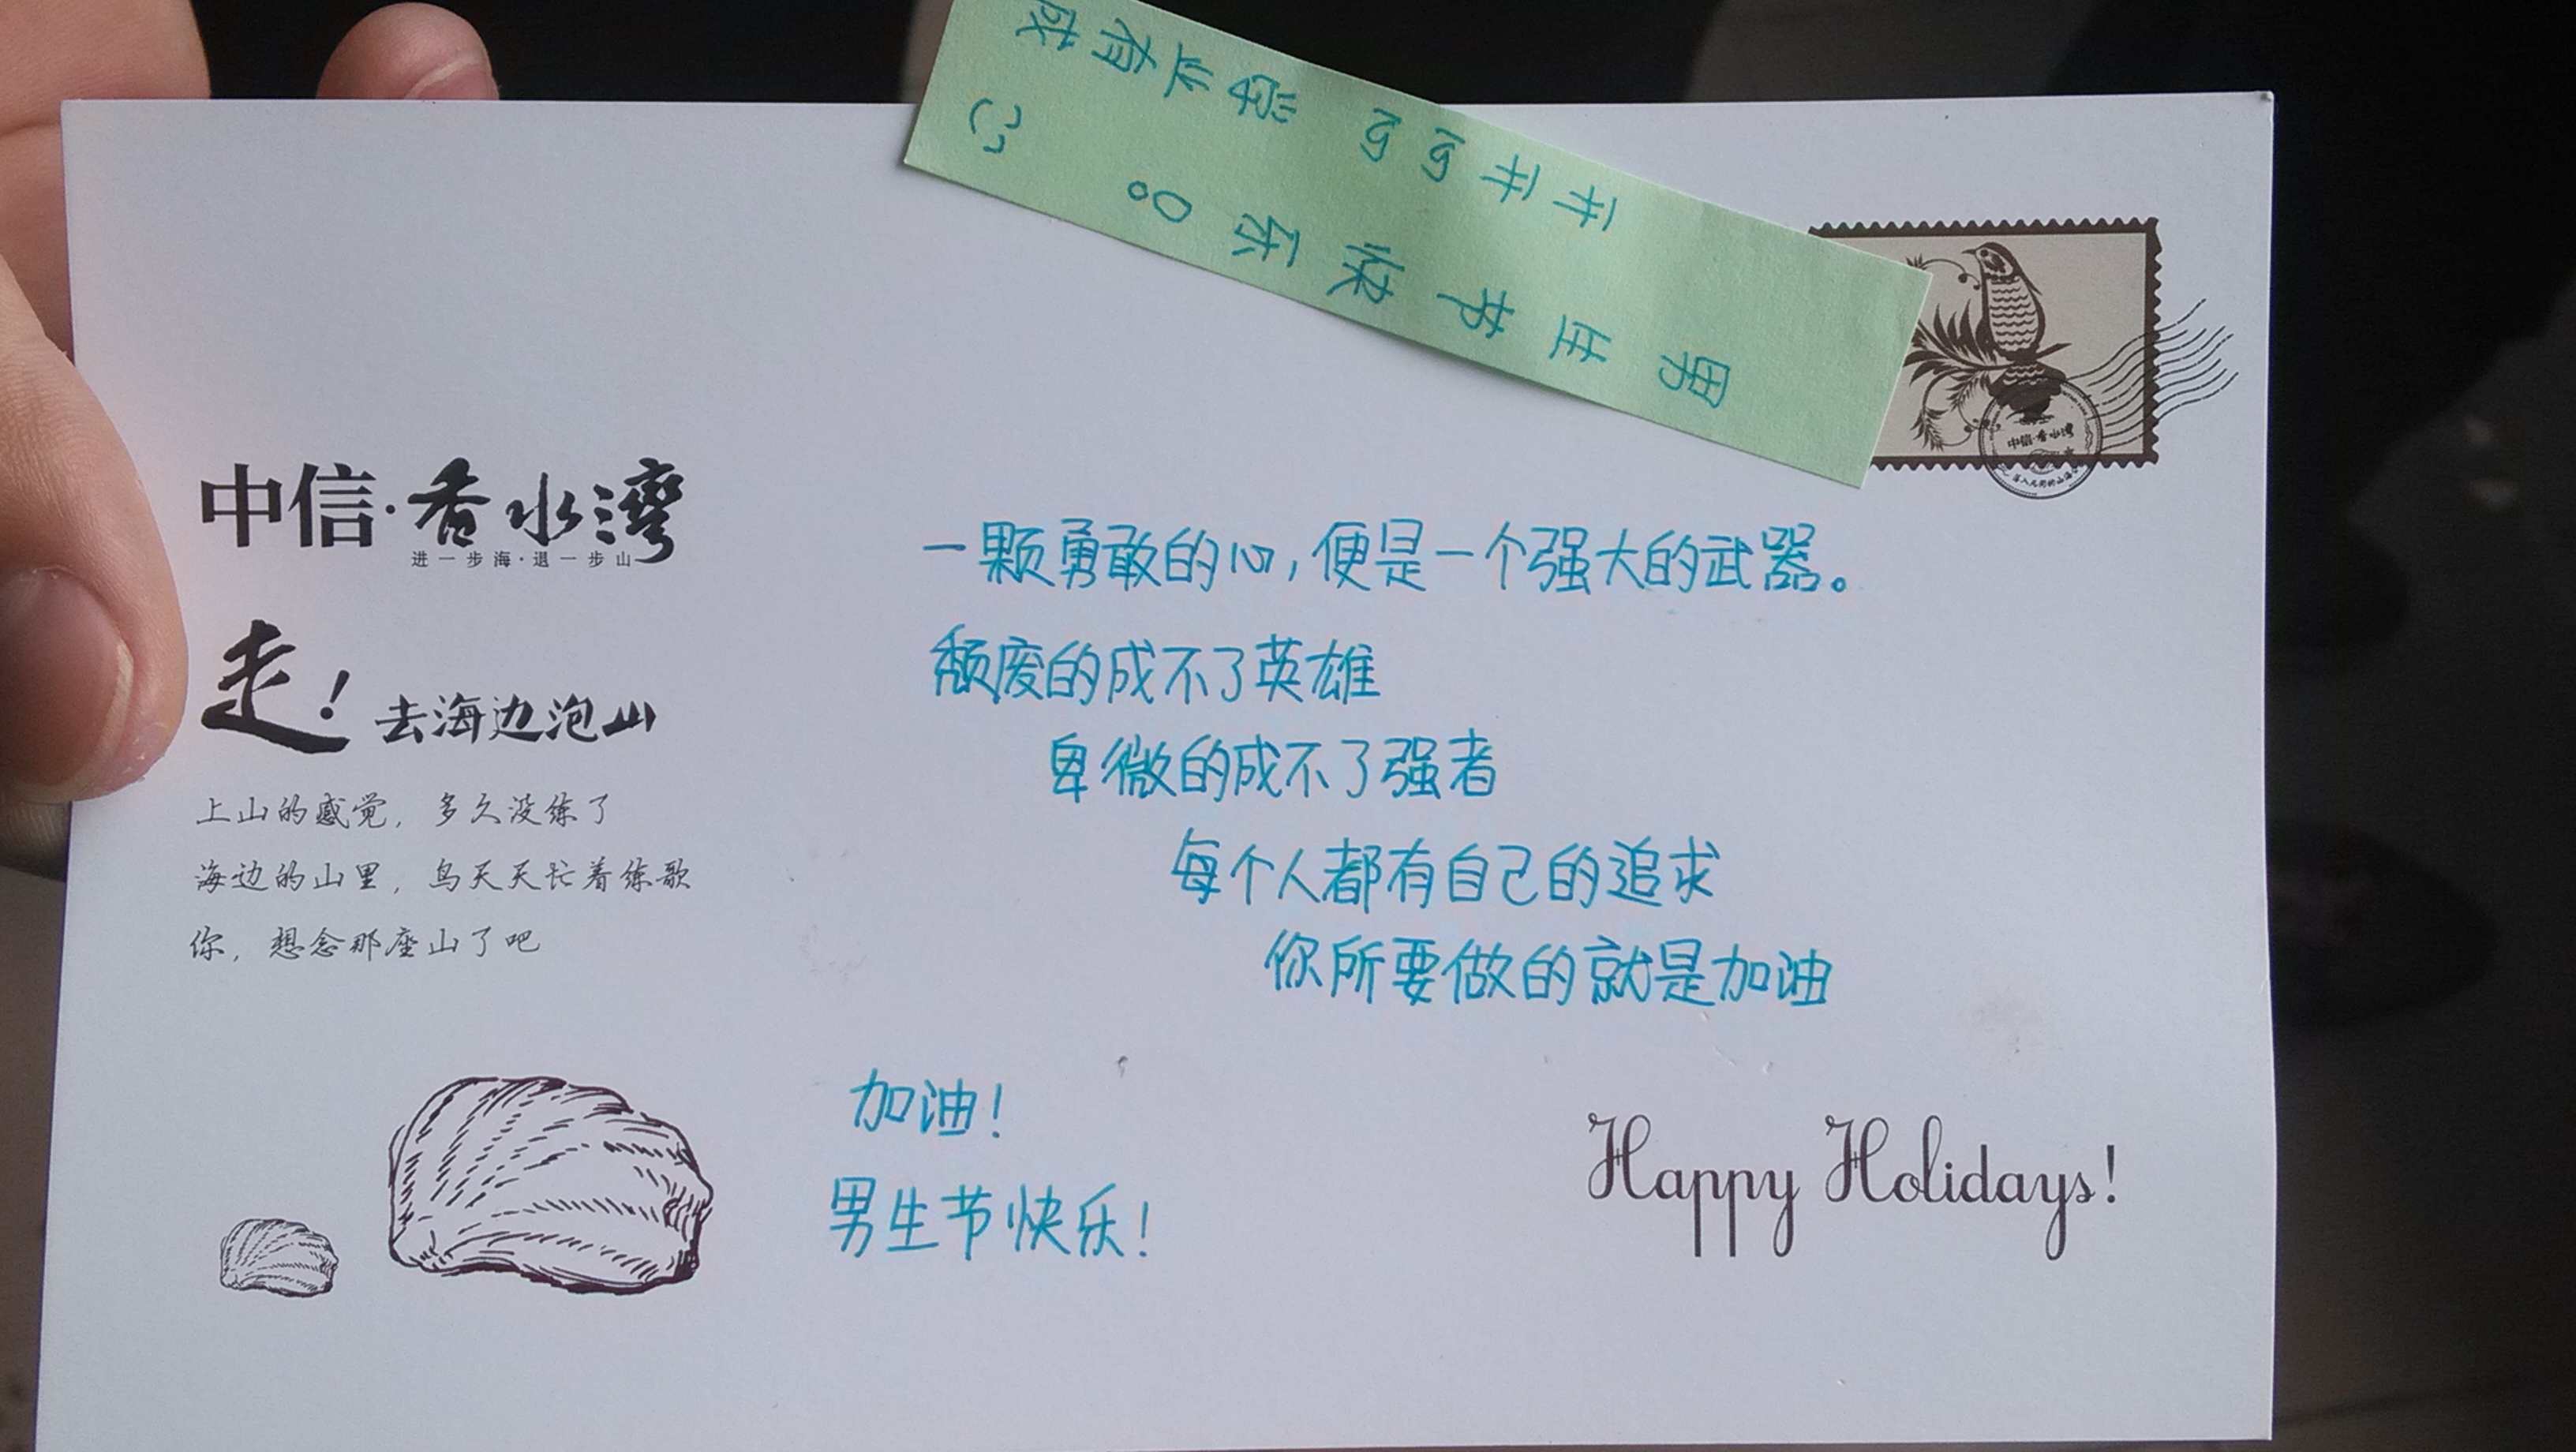 男生节快乐。
开开心心 学业有成
中信·香水湾
进一步海·退一步山
走！去海边泡山
上山的感觉，多久没练了
海边的山里，鸟天天忙着练歌
你，想念那座山了吧
中信·香水湾
一颗勇敢的心，便是一个强大的武器。
颓废的成不了英雄
卑微的成不了强者
每个人都有自己的追求
你所要做的就是加油
加油！
男生节快乐！
Happy Holidays!